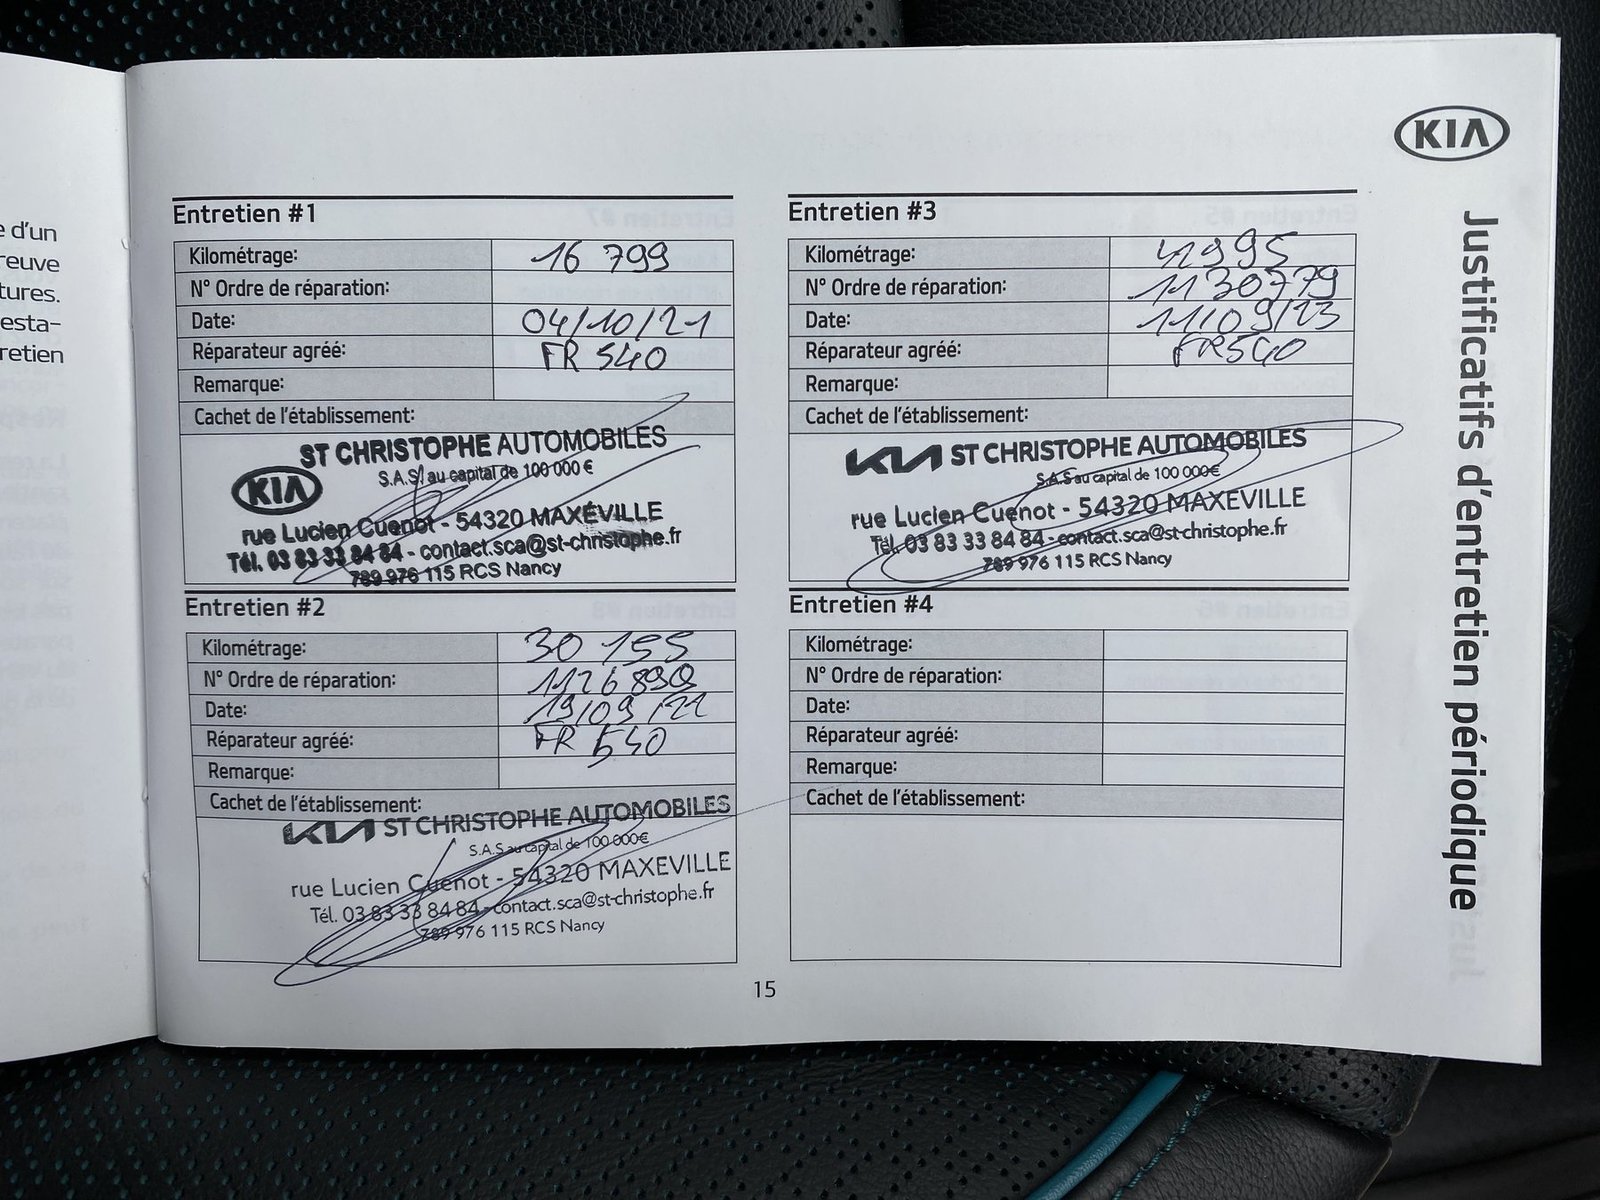 e d'un
reuve
tures.
esta-
retien
KIA
Justificatifs d'entretien périodique
Entretien #1
Kilométrage: 16 799
N° Ordre de réparation:
Date: 04/10/21
Réparateur agréé: FR 540
Remarque:
Cachet de l'établissement:
ST CHRISTOPHE AUTOMOBILES
S.A.S. au capital de 100 000 €
KIA
rue Lucien Cuenot - 54320 MAXÉVILLE
Tél. 03 83 33 84 84 - contact.sca@st-christophe.fr
789 976 115 RCS Nancy
Entretien #2
Kilométrage: 30 155
N° Ordre de réparation: 1126890
Date: 19/09/22
Réparateur agréé: FR 540
Remarque:
Cachet de l'établissement:
KIA ST CHRISTOPHE AUTOMOBILES
S.A.S au capital de 100 000€
rue Lucien Cuenot - 54320 MAXEVILLE
Tél. 03 83 33 84 84 - contact.sca@st-christophe.fr
789 976 115 RCS Nancy
Entretien #3
Kilométrage: 41995
N° Ordre de réparation: 1130779
Date: 11/09/23
Réparateur agréé: FR540
Remarque:
Cachet de l'établissement:
KIA ST CHRISTOPHE AUTOMOBILES
S.A.S au capital de 100 000€
rue Lucien Cuenot - 54320 MAXEVILLE
Tél. 03 83 33 84 84 - contact.sca@st-christophe.fr
789 976 115 RCS Nancy
Entretien #4
Kilométrage:
N° Ordre de réparation:
Date:
Réparateur agréé:
Remarque:
Cachet de l'établissement:
15